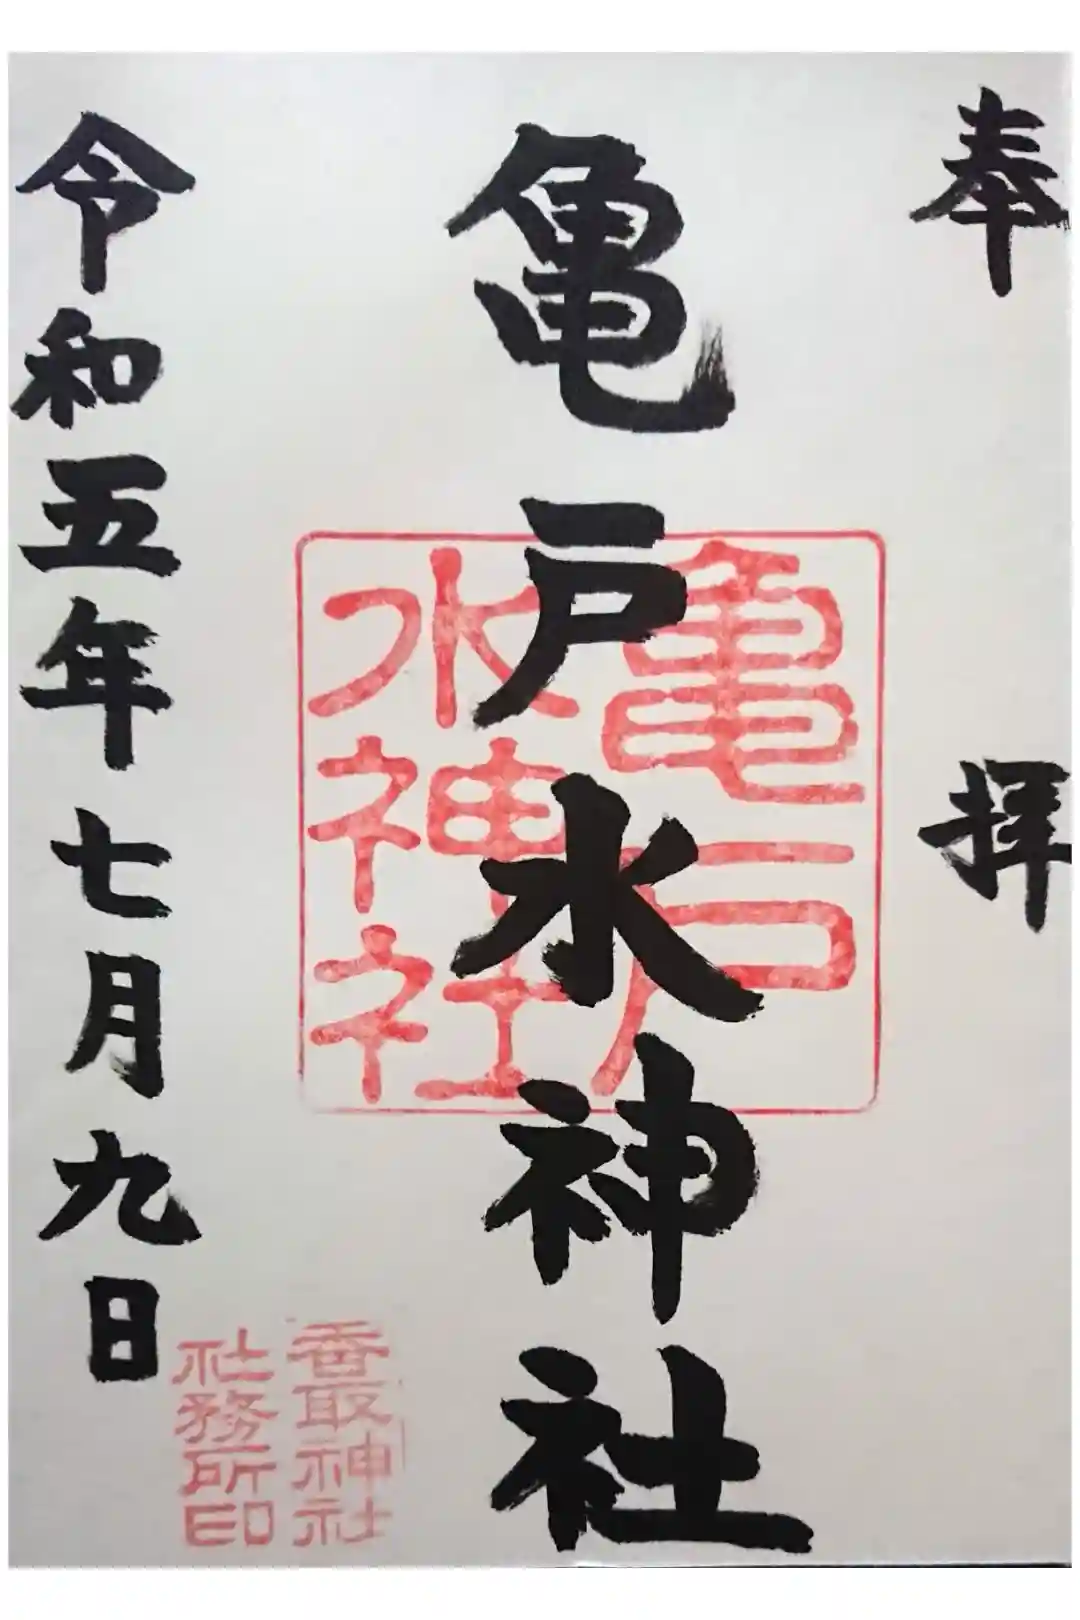 奉拝
亀戸水神社
亀戸
水神社
令和五年七月九日
香取神社
社務所印